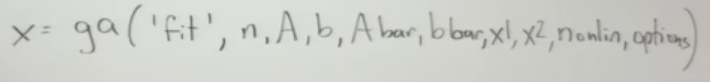 x= ga('fit', n, A, b, Abar, bbar, x1, x2, nonlin, options)